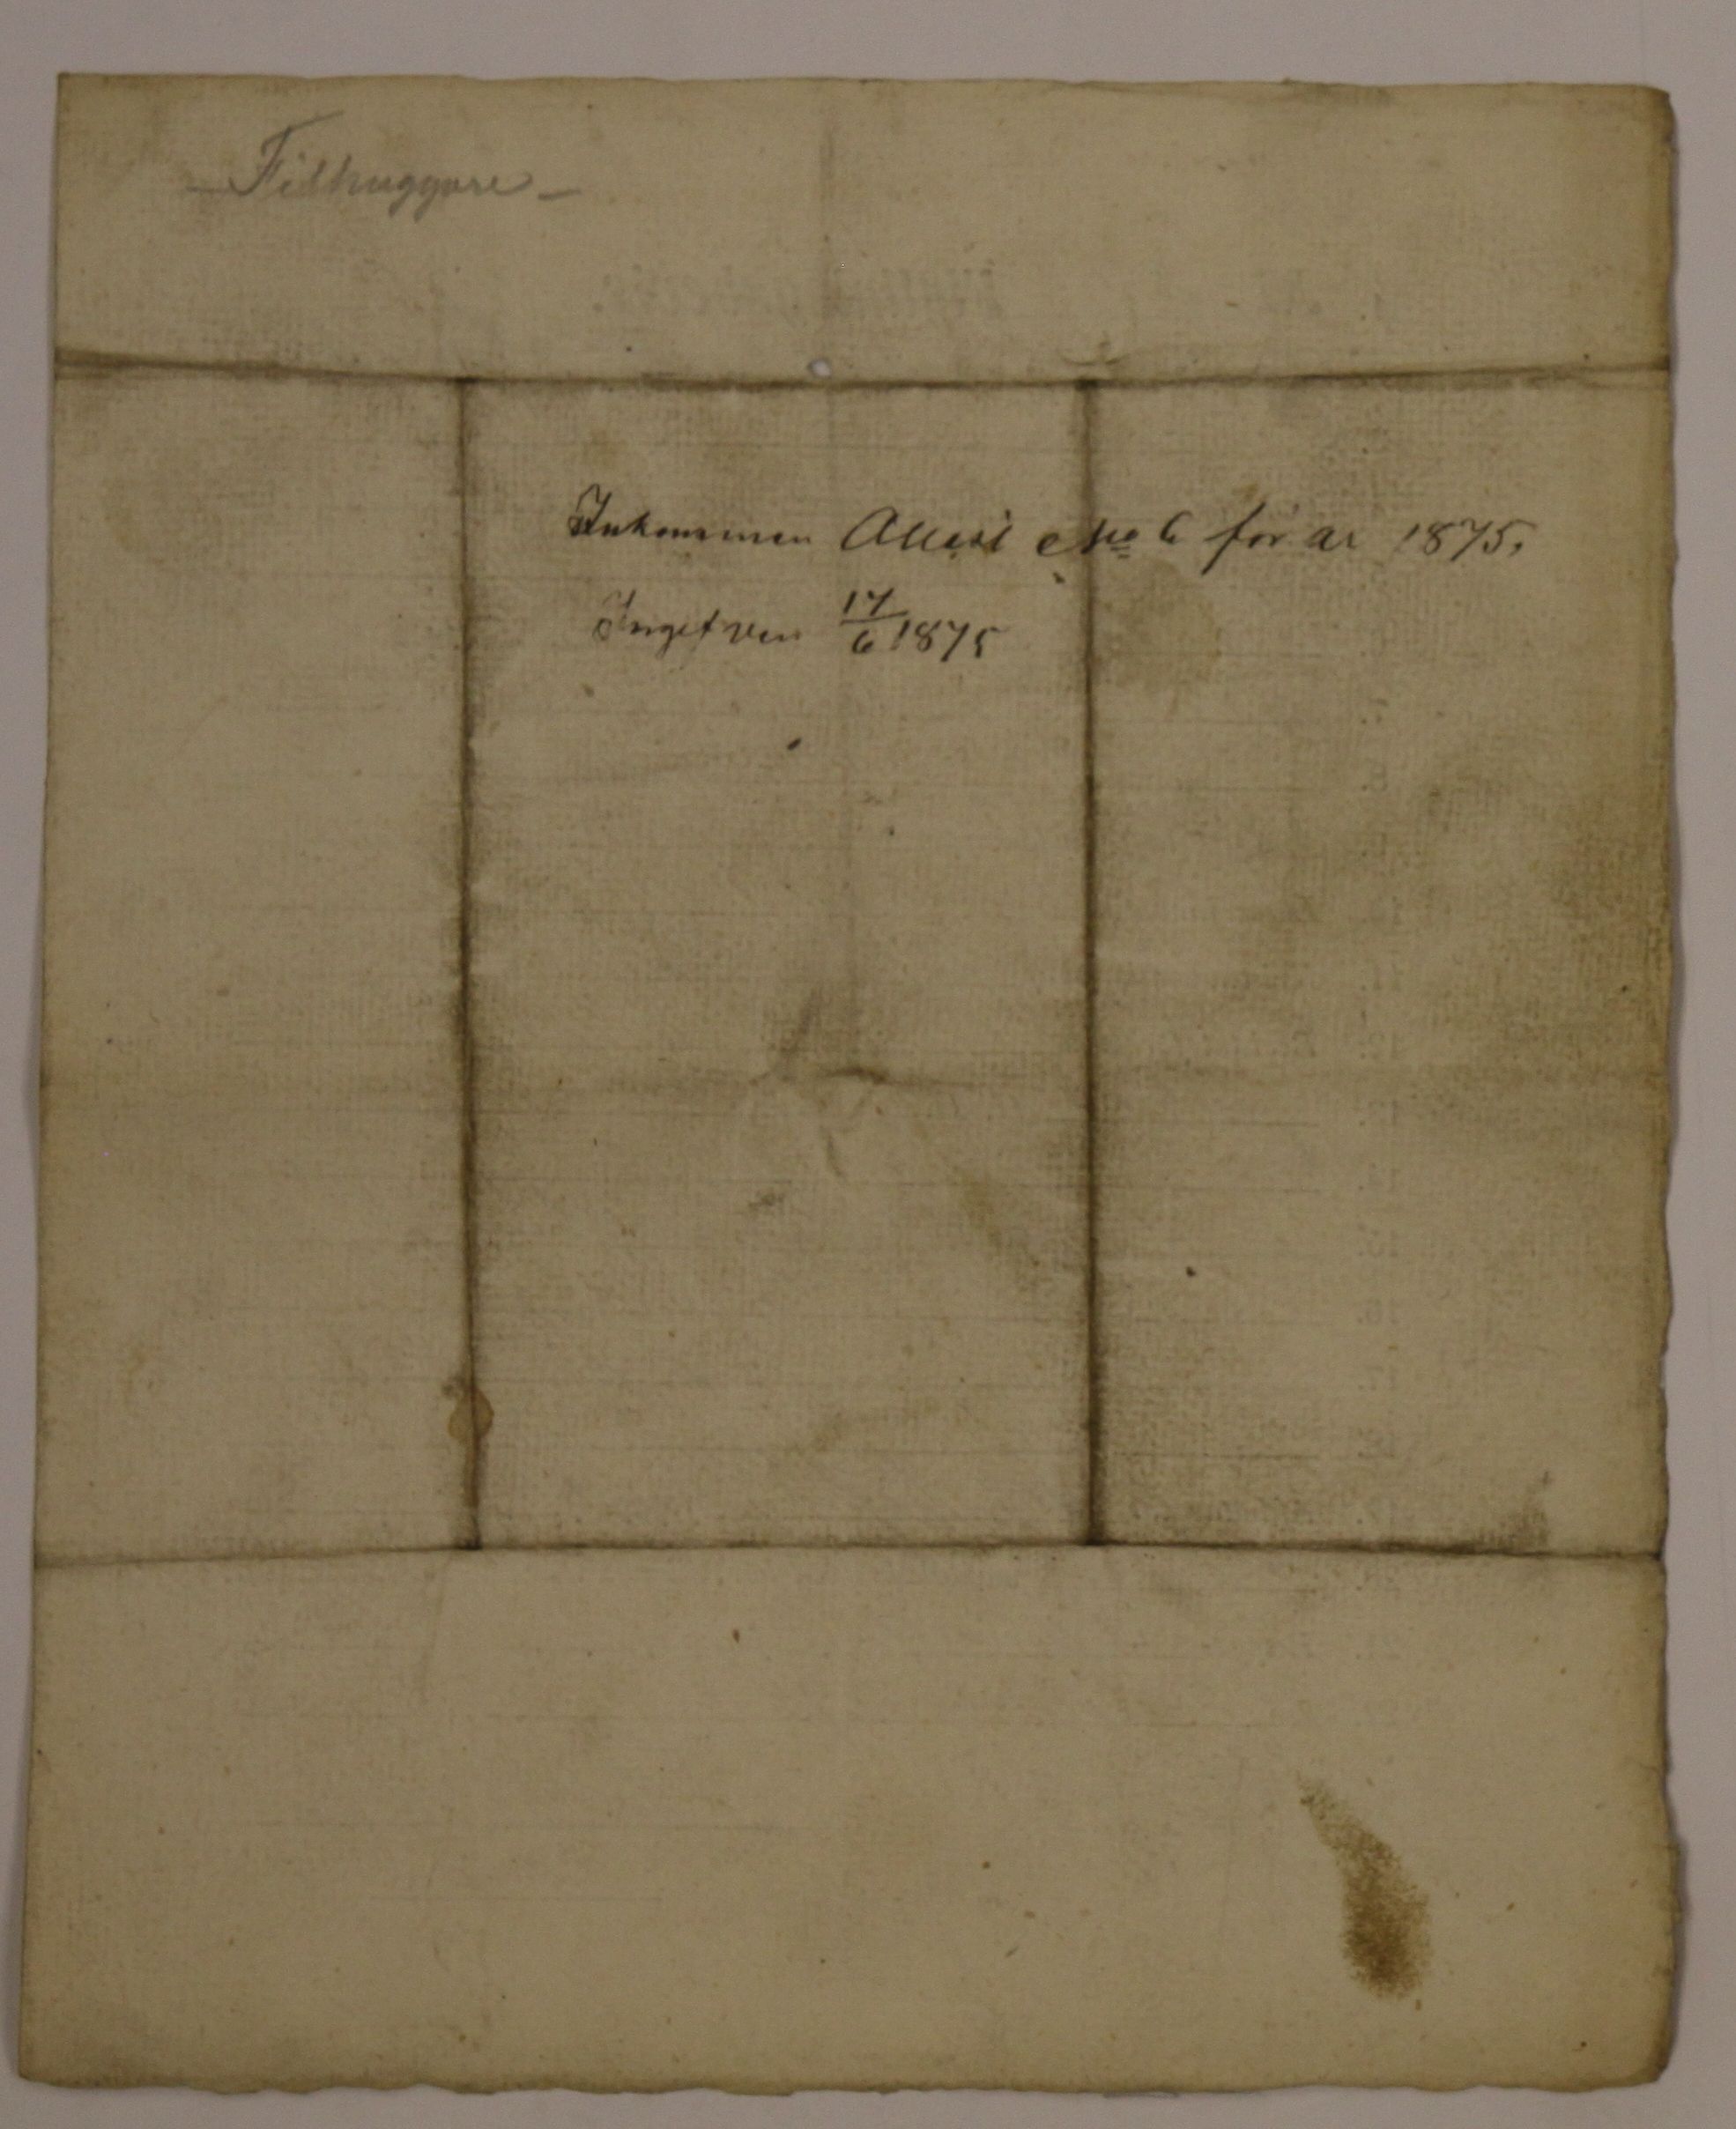 — Filhuggare —
Inkommen Attest No 6 för år 1875.
Ingifven 17/6 1875